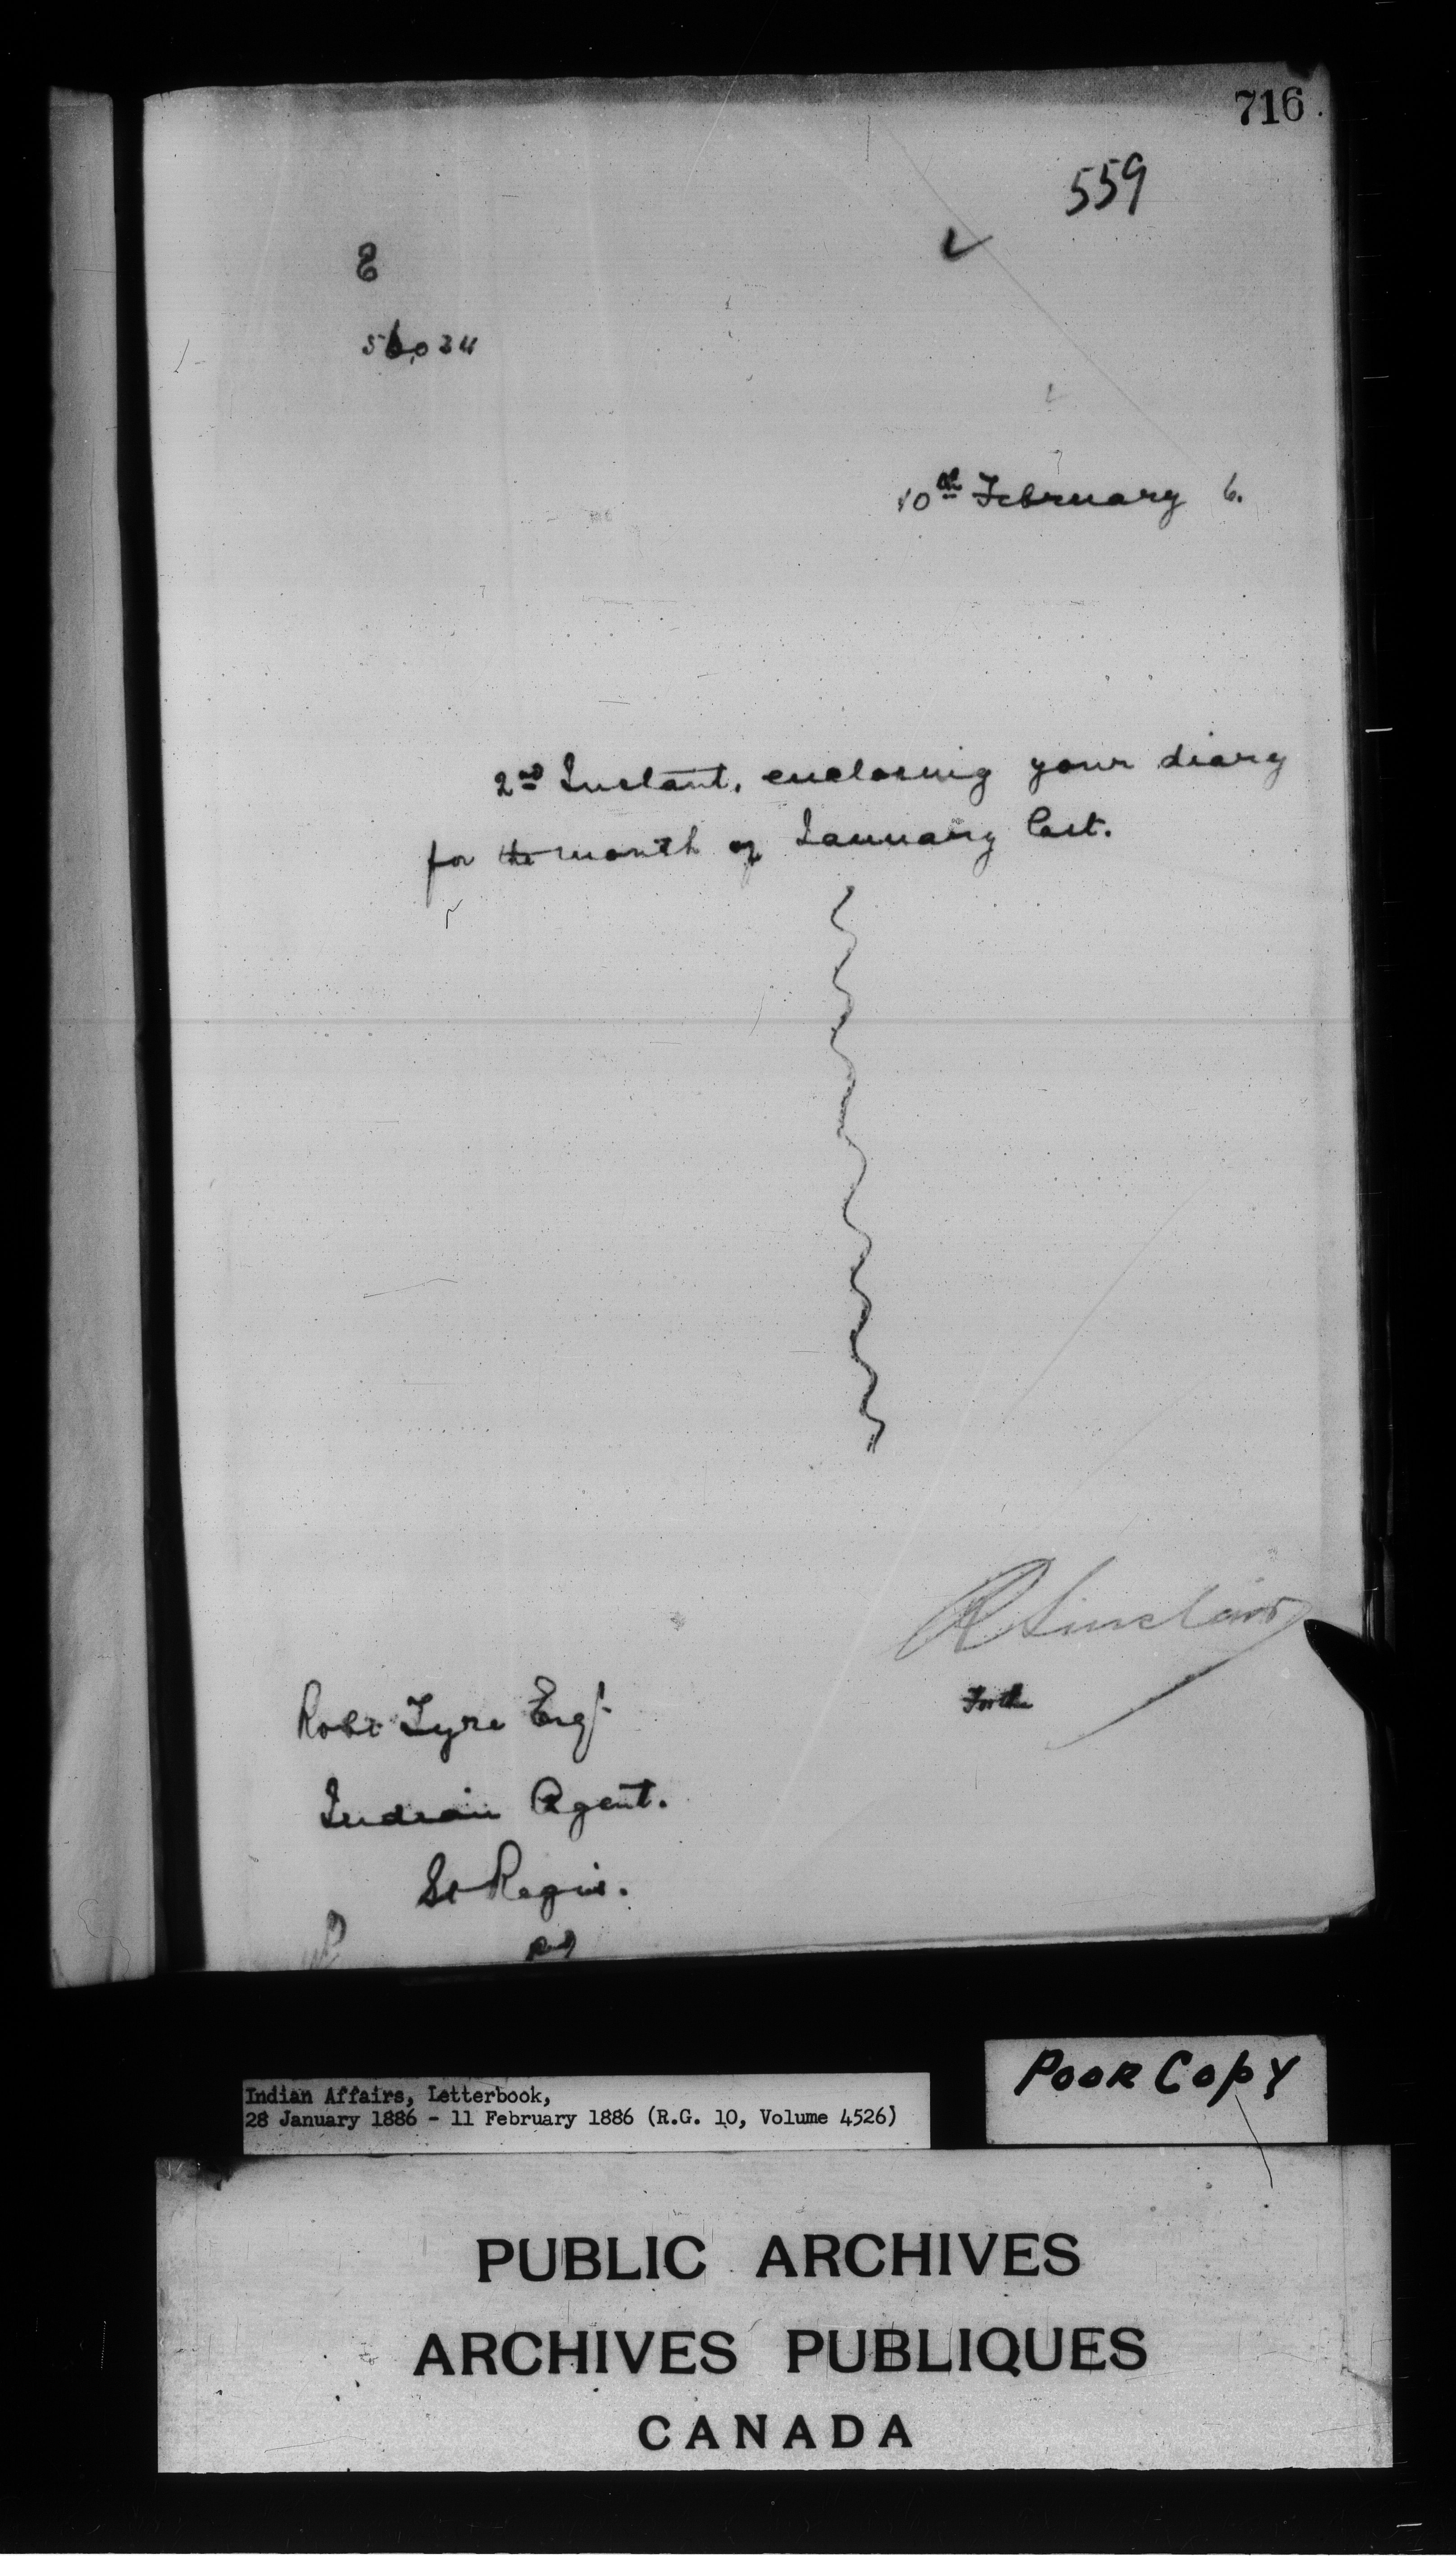 716.
559
E
56,034
10th February 6.
2nd Instant, enclosing your diary
for the month of January last.
R Sinclair
For the
Robt Tyre Esqr
Indian Agent.
St Regis.
Indian Affairs, Letterbook,
28 January 1886 - 11 February 1886 (R.G. 10, Volume 4526)
POOR COPY
PUBLIC ARCHIVES
ARCHIVES PUBLIQUES
CANADA